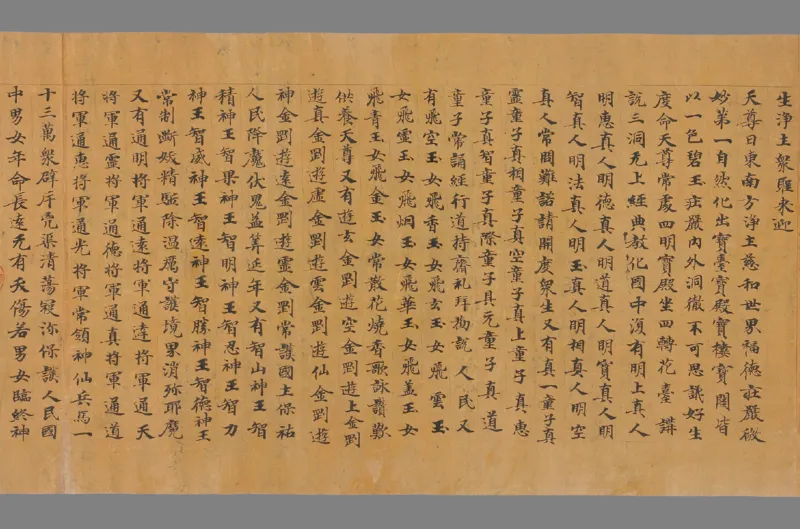 生淨土衆聖來迎
天尊曰東南方淨土慈和世界福德莊嚴微
妙第一自然化出寶臺寶殿寶樓寶閣皆
以一色碧玉莊嚴內外洞徹不可思議好生
度命天尊常處四明寶殿坐四轉花臺講
說三洞无上經典教化國中復有明上真人
明惠真人明德真人明道真人明寶真人明
智真人明法真人明玉真人明相真人明空
真人常問難諮請開度衆生又有真一童子真
靈童子真相童子真空童子真上童子真惠
童子真智童子真際童子真元童子真道
童子常誦經行道持齋礼拜勸說人民又
有飛空玉女飛香玉女飛玄玉女飛雲玉
女飛靈玉女飛烟玉女飛華玉女飛蓋玉女
飛青玉女飛金玉女常散花燒香歌詠讚歎
供養天尊又有遊玄金剛遊空金剛遊上金剛
遊真金剛遊虛金剛遊雲金剛遊仙金剛遊
神金剛遊遠金剛遊靈金剛常護國主保祐
人民降魔伏鬼益筭延年又有智山神王智
精神王智果神王智明神王智忍神王智力
神王智威神王智達神王智勝神王智德神王
常制斷妖精駈除温厲守護境界消弥耶魔
又有通明將軍通遠將軍通達將軍通天
將軍通靈將軍通德將軍通真將軍通道
將軍通惠將軍通光將軍常領神仙兵馬一
十三萬衆辟斥兇渠清蕩寇弥保護人民國
中男女年命長遠无有夭傷若男女臨終神